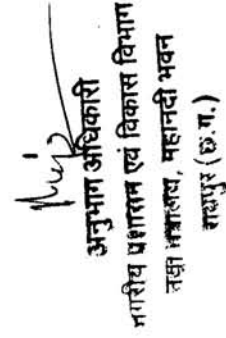 अनुभाग अधिकारी
नगरीय प्रशासन एवं विकास विभाग
महानदी भवन
रायपुर (छ.ग.)